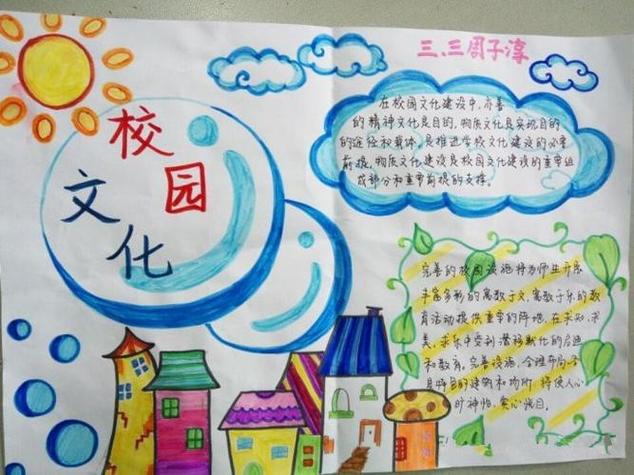 三、三周子淳
校园
文化
在校园文化建设中,完善
的精神文化是目的,物质文化是实现目的
的途径和载体,是推进学校文化建设的必要
前提,物质文化建设是校园文化建设的重要组
成部分和重要前提的支撑。
完善的校园设施将为师生开展
丰富多彩的寓教于文,寓教于乐的教
育活动提供重要的阵地,在求知、求
美、求乐中受到潜移默化的启迪
和教育,完善设施、合理布局、各
具特色的建筑和场所,将使人心
旷神怡,赏心悦目。